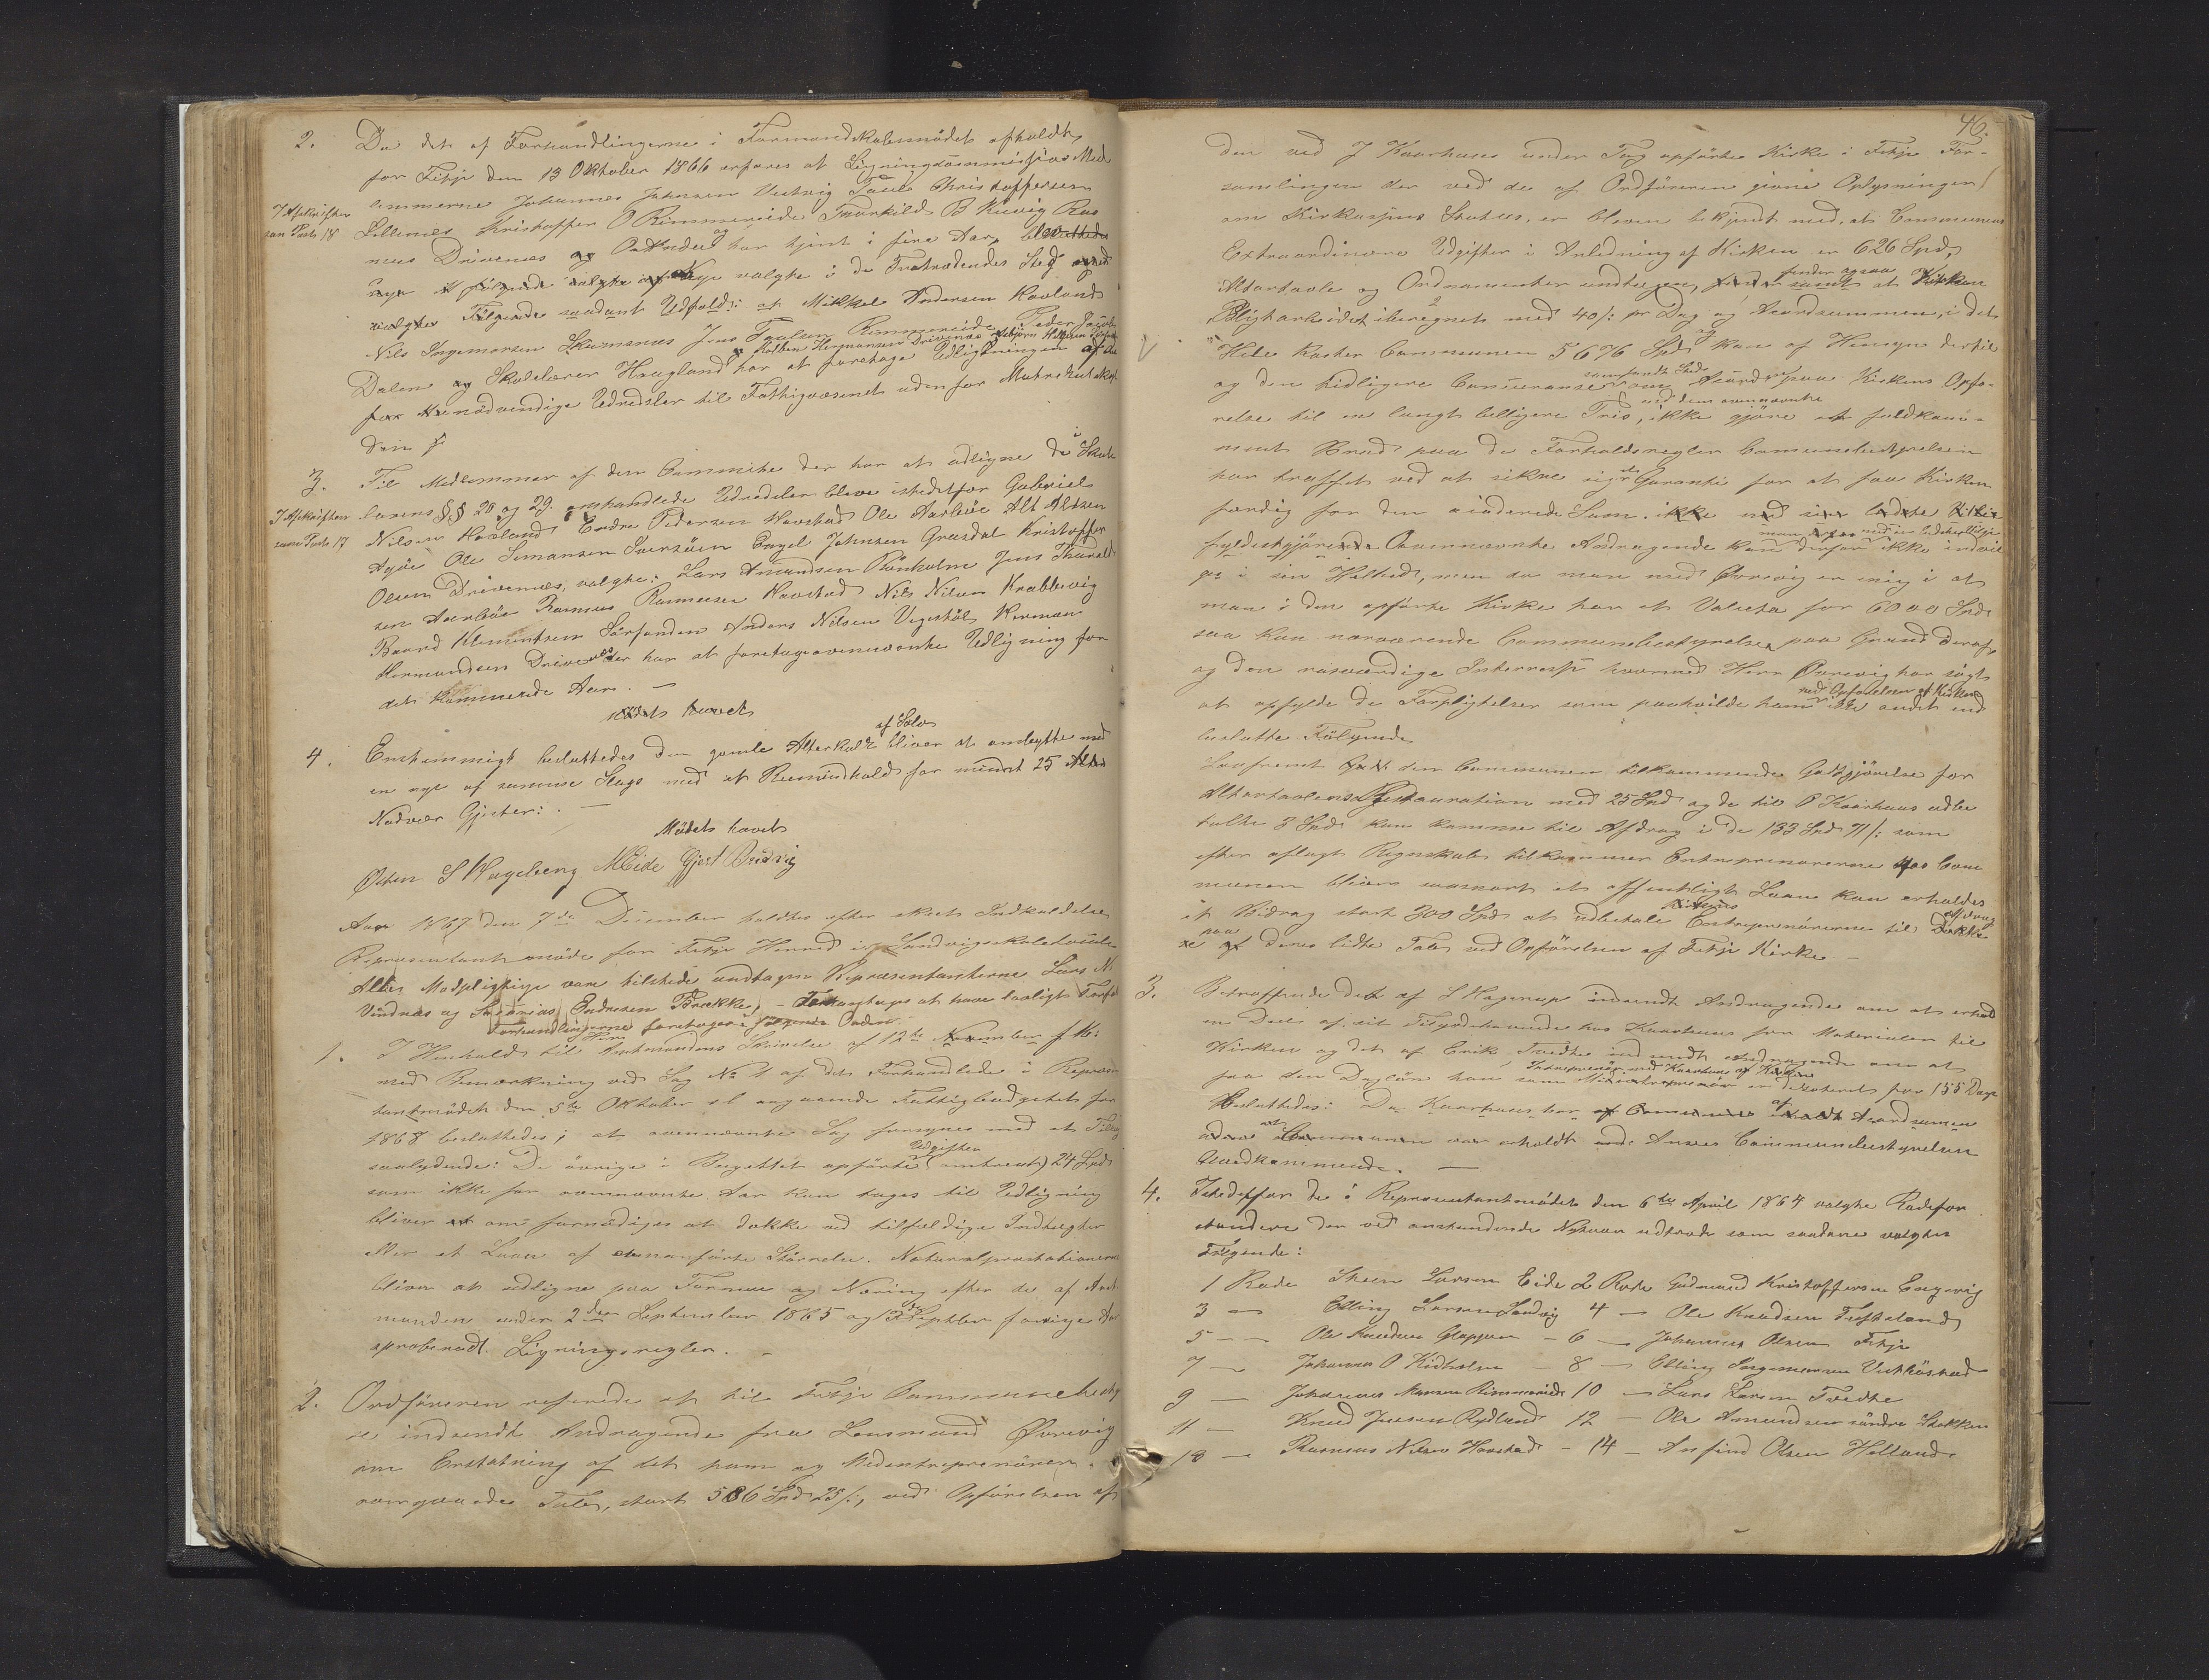 2. Da det af Forhandlingerne i Formandskabsmødet afholdt
for Fitje den 13 Oktober 1866 erfares at Ligningskommissions Med
lemmerne Johannes Johnsen Vestvig Paul Christoffersen
I Afskriften
som Post 18
Lillenes Kristoffer O Rimmereide Thorkild B Kuvig Ras
mus Drivenes og har tjent i fire Aar,
nye valgte i de Fratrædendes Sted
valgtes Følgende saadant Udfald: at Mikkel Andersen Hovland
Nils Ingemorsen Skumsnes Jens Poulsen Rimmereide Peder Jacob
Kolben Hermansen Drivenes
Dalen og Skolelærer Haugland har at foretage Udligningen af de
for nødvendige Udredsler til Fattigvæsenet udenfor Matrikulskat
den
3. Til Medlemmer af den Committe der har at udligne de i Skole
I Afskriften
som Post 17
lovens §§ 28 og 29. omhandlede Udredsler bleve istedetfor Gabriel
Nilsen Hovland Endre Pedersen Havstad Ole Aarbøe Alt Altsen
Agøe Ole Simonsen Sverøen Engel Johnsen Grasdal Kristoffer
Olsen Drivenes, valgte: Lars Amundsen Bønholm Jens Thorvald
sen Aarbøe Rasmus Rasmusen Havstad Nils Nilsen Krabbevig
Baard Klementsen Sørfonden Anders Nilsen Vegestøl Herman
Hermandsen Drivenes der har at foretage ovennævnte Udligning for
det kommende Aar. —
Mødets hævet
4. Enstemmigt besluttedes den gamle Alterkalk af Sølv bliver at ombytte med
en nye af samme Slags med et Rumindhold for mindst 25
Nadver Gjester: . —
Mødets hævet
Østen S Wageberg MEide Gjert Breidvig
Aar 1867 den 7de December holdtes efter skeet Indkaldelse
Repræsentantmøde for Fitje Herred i Sandvigs skolelocale
Alle Mødpligtige vare tilstede undtagen Repræsentanterne Lars N
Vindnes og Endresen Brekke, — at have lovligt Forfald
Forhandlingerne foretages i følgende Orden
1. I Henhold til Herr Amtmandens Skrivelse af 12te November f. H:
med Bemærkning ved Sag No 1 af det Forhandlede i Repræsen
tantmødet den 5te Oktober sl angaaende Fattigbudgetet for
1868 besluttedes; at ovennævnte Sag forsynes med et Tillæg
saalydende: De øvrige i Bugettet opførte Udgifter (omtrent) 24 Spd
som ikke for ovennævnte Aar kan tages til Udligning
bliver om fornødiges at dække ved tilfældige Indtægter
eller et Laan af ovenanførte Størrelse. Naturalpræstationerne
bliver at udligne paa Formue og Næring efter de af Amt
manden under 2den September 1865 og Septbr forrige Aar
aproberedt Ligningsregler. —
2. Ordføreren refererede et til Fitje Communebesty
re indsendt Andragende fra Lensmand Øvrevig
om Erstatning af det ham og Medentreprenører
overgaaede Tab, stort 586 Spd 25 /:, ved Opførelsen af
46.
den ved J Kaarhuus under Tag opførte Kirke i Fitje For-
samlingen der ved de af Ordføreren givne Oplysninger
om Kirkesyns Status, er bleven bekjendt med, at Communens
Extraordinære Udgifter i Anledning af Kirken er 626 Spd,
Altertavle og Ordnamenter undtagen, finder ogsaa at Kirken
Pligtarbeidet iberegnet med 40 /: pr Dag og Acordsummen, i det
Hele koster Communen 5676 Spd og kan af Hensyn dertil
og den tidligere Concuranse om Acord paa Kirkens Opfø-
relse til en langt billigere Pris, ikke gjøre et fuldkom-
ment Brud paa de Forholdsregler Communebestyrelsen
har truffet ved at sikre sig Garanti for at faa Kirken
færdig for den accorderede Sum.
fyldestgjørende Ovennævnte Andragende kan derfor ikke indvil
ges i sin Helhed, men da man med Øvrevig er enig i at
man i den opførte Kirke har et Valuta for 6000 Spd
saa kan nærværende Communebestyrelse paa Grund deraf,
og den rosværdige Interresse hvormed Herr Øvrevig har søgt
at opfylde de Forpligtelser som paahvilde ham ved Opførelsen af Kirken ikke andet end
beslutte Følgende
Saafremt den Communen tilkommende Godtgjørelse for
Altertavlens Restauration med 25 Spd og de til P Kaarhuus udbe
talte 3 Spd kan komme til Afdrag i de 133 Spd 71 /: som
efter aflagt Regnskab tilkommer Entreprenørerne hos Com
munen blives saasnart et offentligt Laan kan erholdes
et Bidrag stort 300 Spd at udbetale Kirkens Entreprenørerne til Afdrag
paa deres lidte Tab ved Opførelsen af Fitje Kirke. —
3. Betræffende det af S Hagerup indsendt Andragende om at erhold
en Deel af sit Tilgodehavende hos Kaarhuus for Materialer til
Kirken og det af Erik Tvedte indsendt Andragende om at
faa den Dagløn han som Medentreprenør er decoteret for 155 Dage
Besluttedes: Da Kaarhuus har Acordsumen
af Communen var erholdt Ansees Communebestyrelsen
Uvedkommende. —
4. Istedetfor de i Repræsentantmødet den 6te April 1864 valgte Rodefor
standere der ved anstundende Nytaar udtræde som saadane valgtes
Følgende:
1 Rode Steen Larsen Eide 2 Rode Gudmund Kristoffersen Engevig
3 — Elling Larsen Sandvig 4 — Ole Knudsen Tufteland
5 — Ole Knudsen Gloppen — 6 — Johannes Olsen Fitje
7 — Johannes O Kidholm — 8 — Elling Ingemorsen Vestbøstad
9 — Johannes Monsen Rimmereide 10 — Lars Larsen Tvedte
11 — Knud Jensen Rydland 12 — Ole Amundsen søndre Stokken
13 — Rasmus Nilsen Havstad — 14 — Anfind Olsen Helland